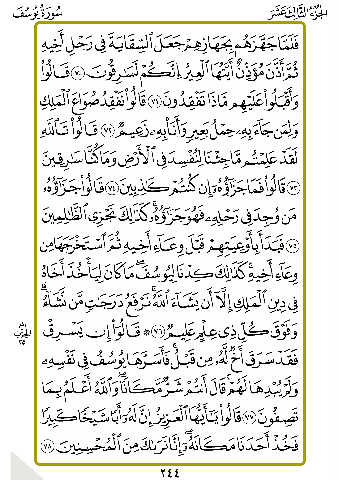 الجزء الثالث عشر
سورة يوسف
فَلَمَّا جَهَّزَهُم بِجَهَازِهِمْ جَعَلَ ٱلسِّقَايَةَ فِى رَحْلِ أَخِيهِ
ثُمَّ أَذَّنَ مُؤَذِّنٌ أَيَّتُهَا ٱلْعِيرُ إِنَّكُمْ لَسَٰرِقُونَ ﴿٧٠﴾ قَالُوا۟
وَأَقْبَلُوا۟ عَلَيْهِم مَّاذَا تَفْقِدُونَ ﴿٧١﴾ قَالُوا۟ نَفْقِدُ صُوَاعَ ٱلْمَلِكِ
وَلِمَن جَآءَ بِهِۦ حِمْلُ بَعِيرٍ وَأَنَا۠ بِهِۦ زَعِيمٌ ﴿٧٢﴾ قَالُوا۟ تَٱللَّهِ
لَقَدْ عَلِمْتُم مَّا جِئْنَا لِنُفْسِدَ فِى ٱلْأَرْضِ وَمَا كُنَّا سَٰرِقِينَ
﴿٧٣﴾ قَالُوا۟ فَمَا جَزَٰٓؤُهُۥٓ إِن كُنتُمْ كَٰذِبِينَ ﴿٧٤﴾ قَالُوا۟ جَزَٰٓؤُهُۥ
مَن وُجِدَ فِى رَحْلِهِۦ فَهُوَ جَزَٰٓؤُهُۥ كَذَٰلِكَ نَجْزِى ٱلظَّٰلِمِينَ
﴿٧٥﴾ فَبَدَأَ بِأَوْعِيَتِهِمْ قَبْلَ وِعَآءِ أَخِيهِ ثُمَّ ٱسْتَخْرَجَهَا مِن
وِعَآءِ أَخِيهِ كَذَٰلِكَ كِدْنَا لِيُوسُفَ مَا كَانَ لِيَأْخُذَ أَخَاهُ
فِى دِينِ ٱلْمَلِكِ إِلَّآ أَن يَشَآءَ ٱللَّهُ نَرْفَعُ دَرَجَٰتٍ مَّن نَّشَآءُ
وَفَوْقَ كُلِّ ذِى عِلْمٍ عَلِيمٌ ﴿٧٦﴾ ۞ قَالُوٓا۟ إِن يَسْرِقْ
فَقَدْ سَرَقَ أَخٌ لَّهُۥ مِن قَبْلُ فَأَسَرَّهَا يُوسُفُ فِى نَفْسِهِۦ
وَلَمْ يُبْدِهَا لَهُمْ قَالَ أَنتُمْ شَرٌّ مَّكَانًا وَٱللَّهُ أَعْلَمُ بِمَا
تَصِفُونَ ﴿٧٧﴾ قَالُوا۟ يَٰٓأَيُّهَا ٱلْعَزِيزُ إِنَّ لَهُۥٓ أَبًا شَيْخًا كَبِيرًا
فَخُذْ أَحَدَنَا مَكَانَهُۥٓ إِنَّا نَرَىٰكَ مِنَ ٱلْمُحْسِنِينَ ﴿٧٨﴾
٢٤٤